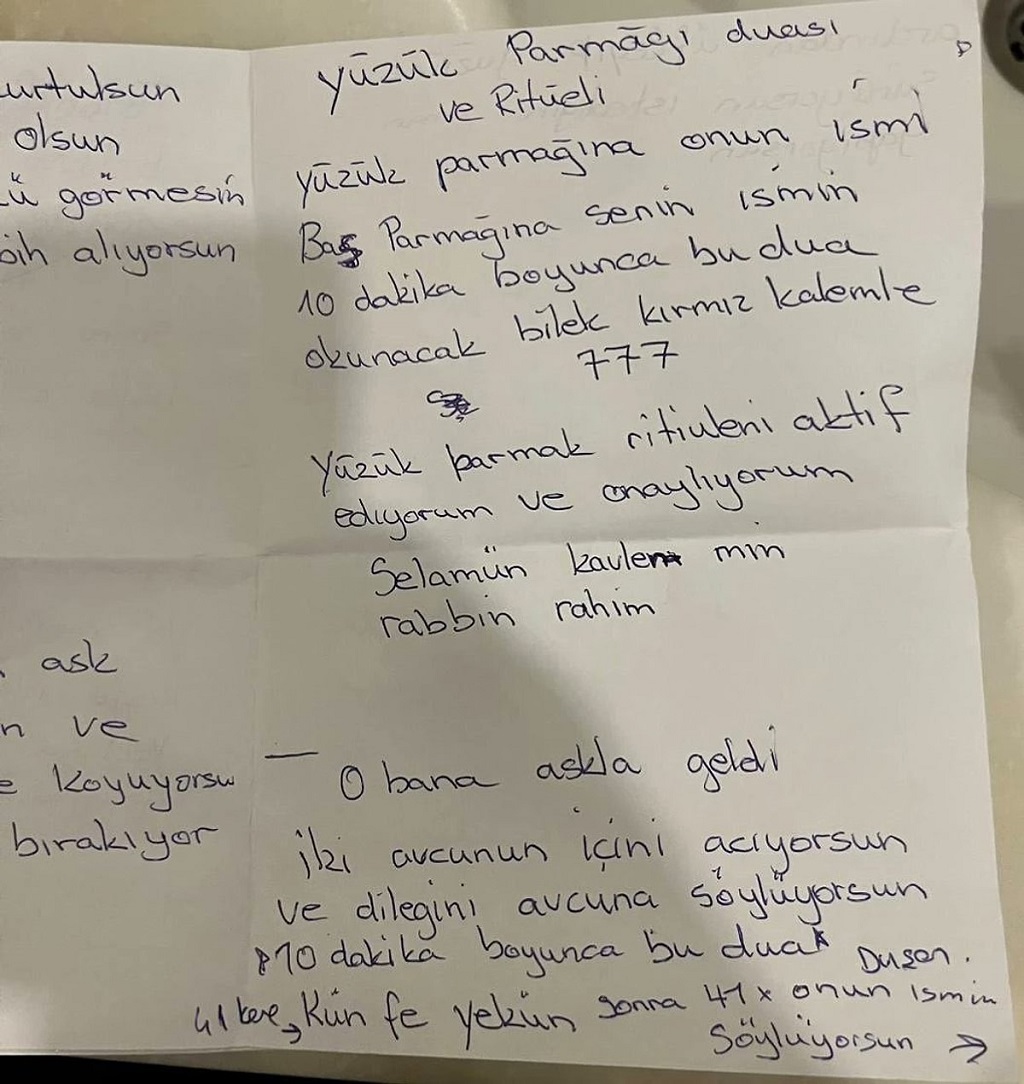 urtulsun
olsun
ü görmesin
bih alıyorsun
ask
n ve
e koyuyorsu
bırakıyor
yüzük Parmağı duası
ve Ritüeli
yüzük parmağına onun ismi
Baş Parmağına senin ismin
10 dakika boyunca bu dua
okunacak bilek kırmız kalemle
777
Yüzük parmak ritiuleni aktif
ediyorum ve onaylıyorum
Selamün kavlem min
rabbin rahim
— O bana askla geldi
iki avcunun içini acıyorsun
ve dilegini avcuna söylüyorsun
10 dakika boyunca bu dua Dusen.
41 kere, Kün fe yekün sonra 41x onun ismin
söylüyorsun →